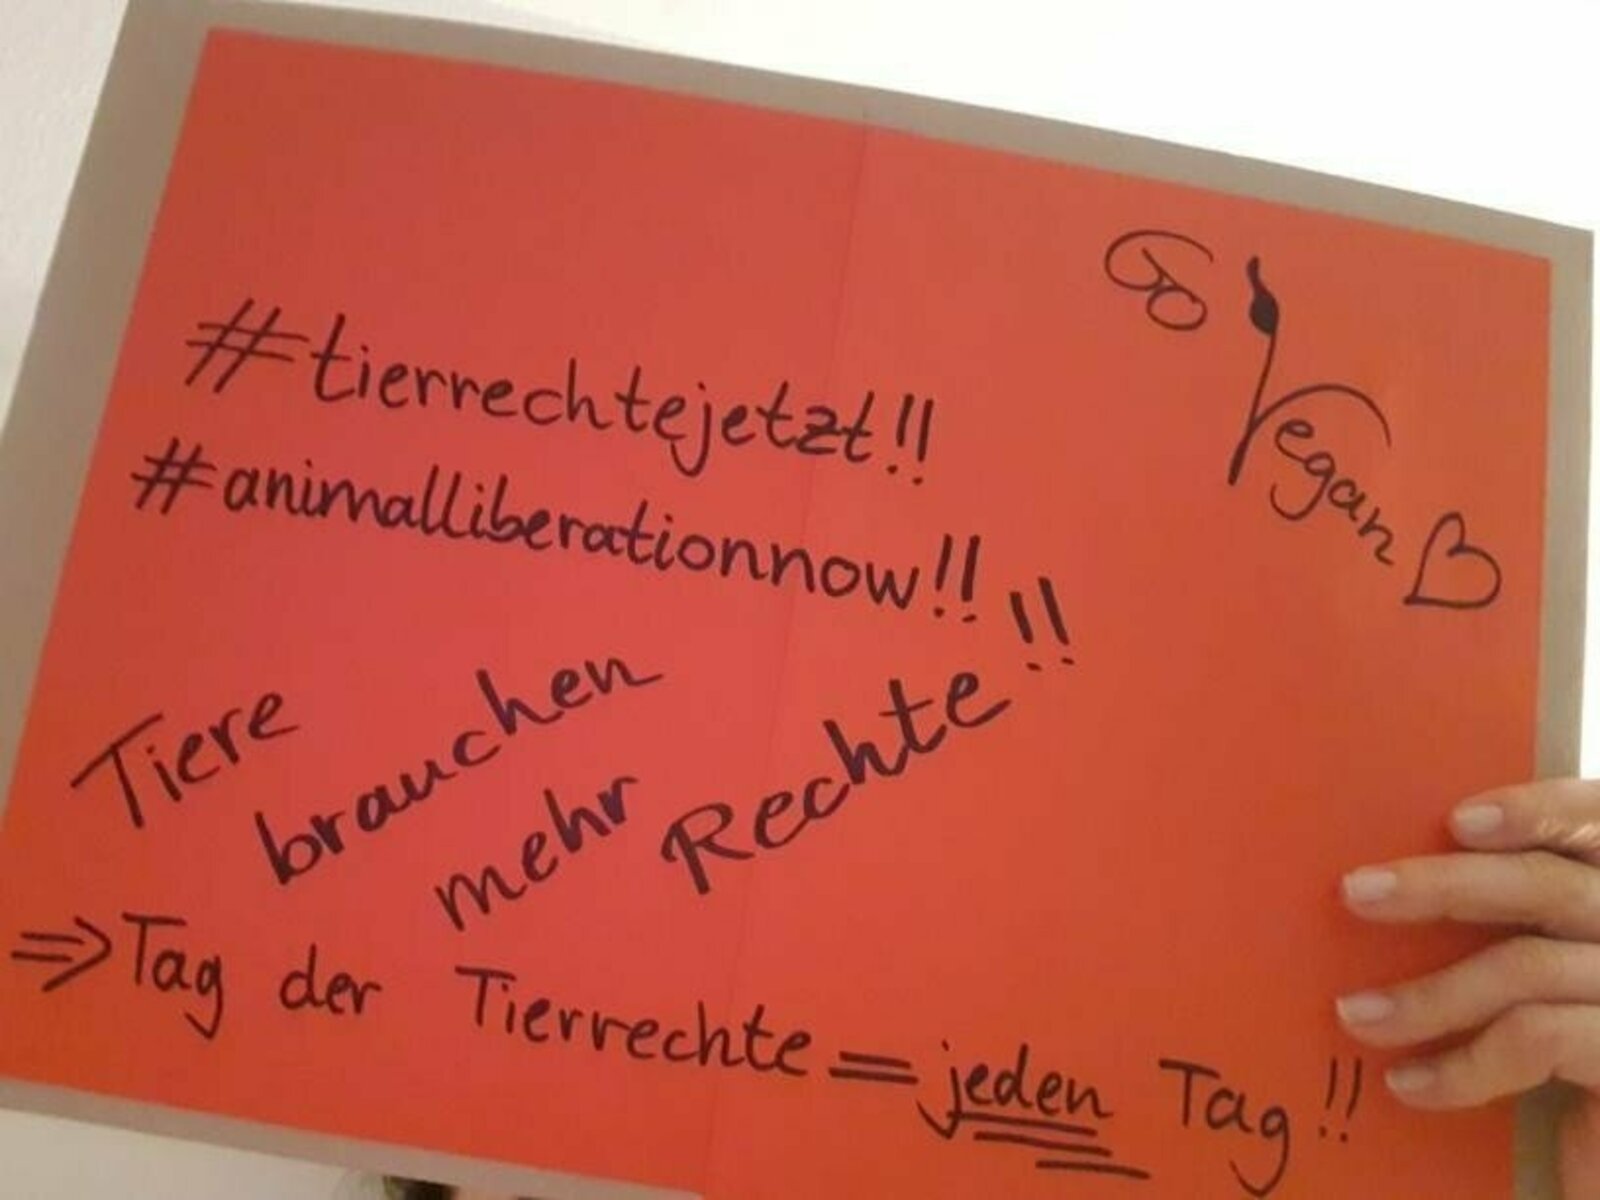 Go Vegan♡
#tierrechtejetzt!!
#animalliberationnow!!
Tiere
brauchen
mehr
Rechte!!
⇒ Tag der Tierrechte = jeden Tag!!